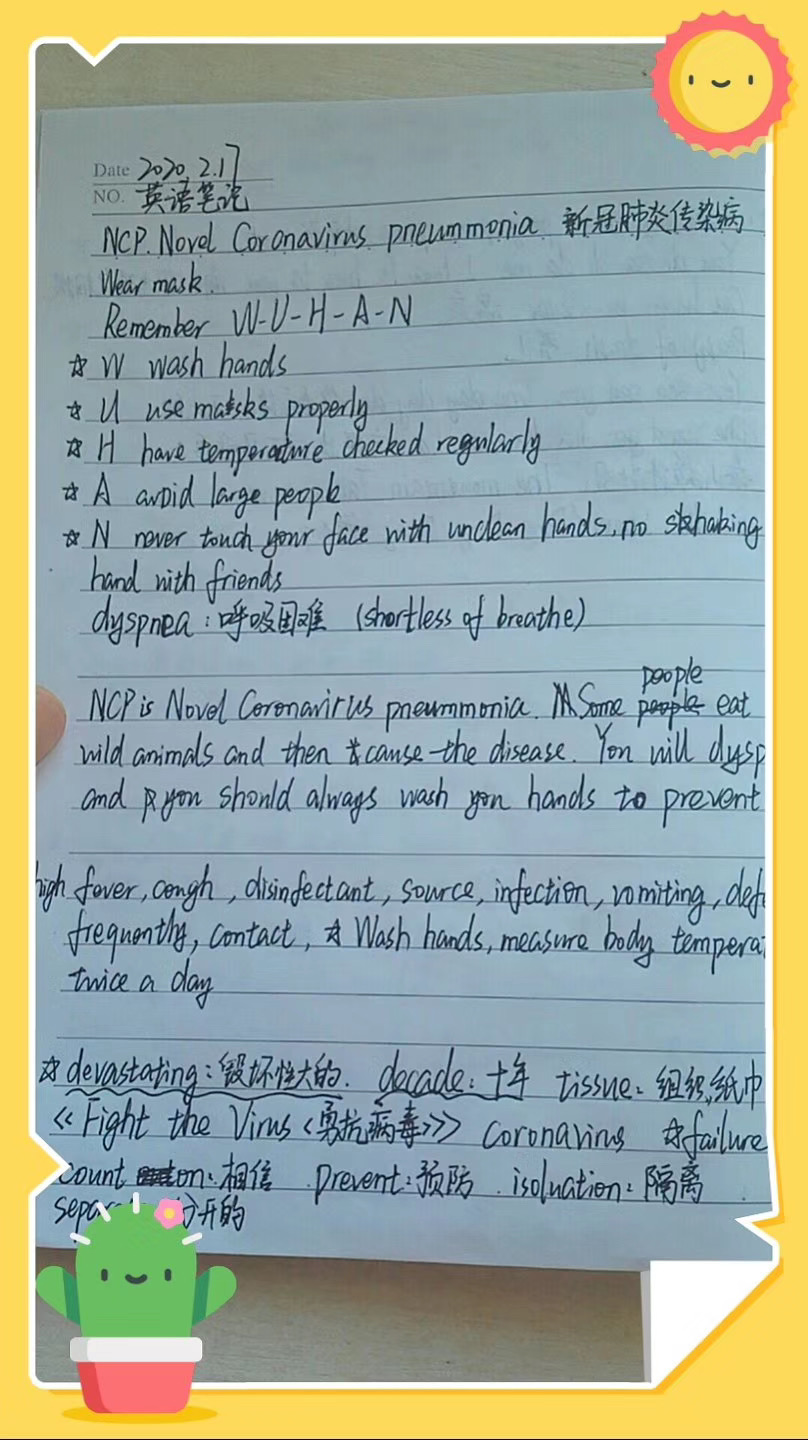 Date 2020.2.17
NO. 英语笔记
NCP. Novel Coronavirus pneummonia 新冠肺炎传染病
Wear mask.
Remember W-U-H-A-N
☆ W wash hands
☆ U use matsks properly
☆ H have temperature checked regularly
☆ A avoid large people
☆ N never touch your face with unclean hands, no shaking
hand with friends
dyspnea：呼吸困难 (shortless of breathe)
people
NCP is Novel Coronavirus pneummonia. Some people eat
wild animals and then cause the disease. You will dysp
and you should always wash you hands to prevent
high fever, cough, disinfectant, source, infection, vomiting, def
frequently, contact, ☆ Wash hands, measure body tempera
twice a day
☆ devastating：毁坏性大的. decade：十年 tissue：组织,纸巾
《Fight the Virus<勇抗病毒>》 coronavirus ☆failure
count on：相信 . prevent：预防 . isoluation：隔离
sepa 分开的